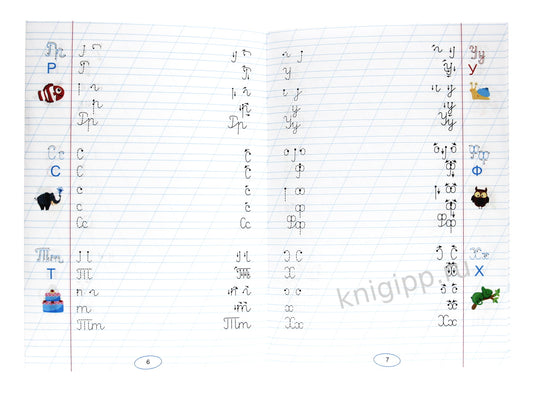 Рр
Р
Р
Рр
Рр
Сс
С
С
С
с
с
Сс
Сс
Тт
Т
Т
Т
т
т
Тт
Тт
6
Уу
У
У
у
Уу
Уу
Фф
Ф
Ф
ф
Фф
Фф
Хх
Х
Х
х
Хх
Хх
7
knigipp.ru